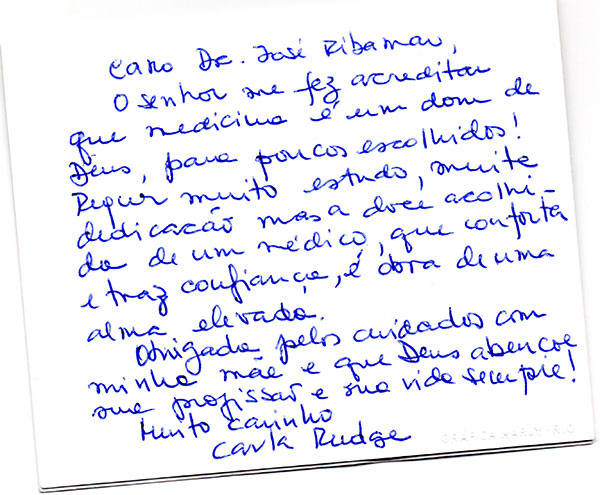 Caro Dr. José Ribamar,
O senhor me fez acreditar
que medicina é um dom de
Deus, para poucos escolhidos!
Requer muito estudo, muita
dedicação mas a doce acolhi-
da de um médico, que conforta
e traz confiança, é obra de uma
alma elevada.
Obrigada pelos cuidados com
minha mãe e que Deus abençoe
sua profissão e sua vida sempre!
Muito carinho
Carla Rudge